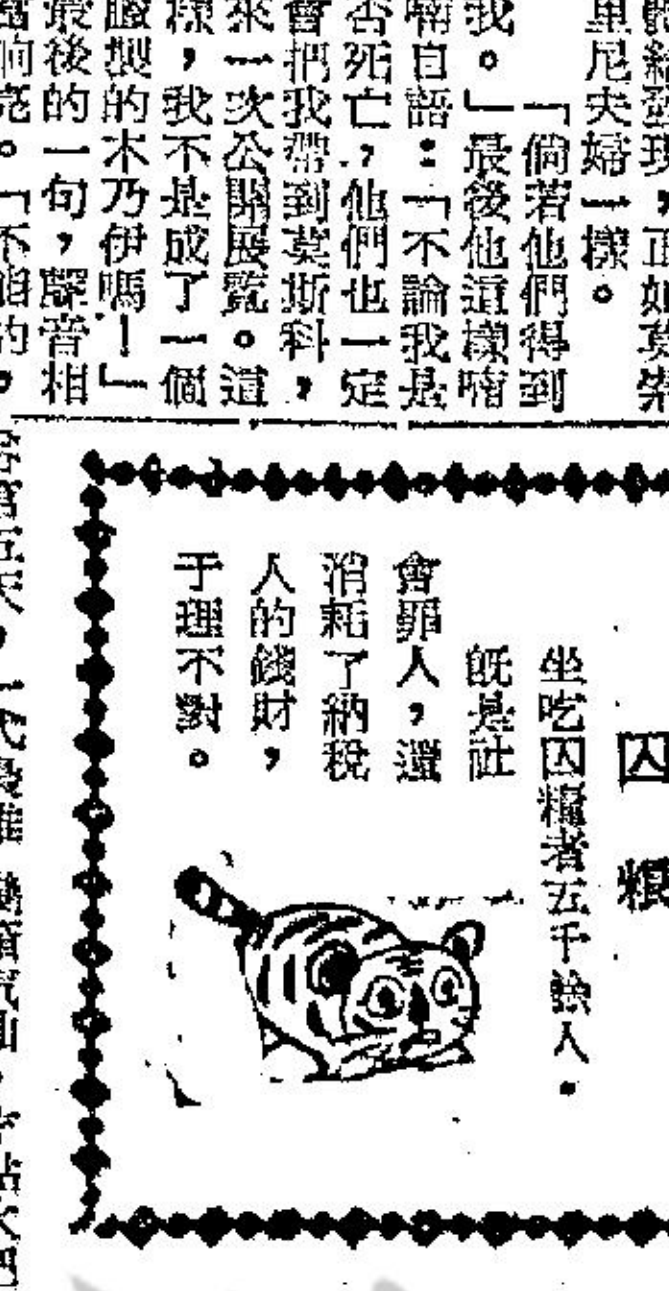 里尼夫婦一樣。
「倘若他們得到
我。」最後他這樣喃
喃自語：「不論我是
否死亡，他們也一定
會把我帶到莫斯科，
來一次公開展覽。這
樣，我不是成了一個
臘製的木乃伊嗎！」
最後的一句，聲音相
囚糧
坐吃囚糧者五千餘人。
既是社
會罪人，還
消耗了納稅
人的錢財，
于理不對。